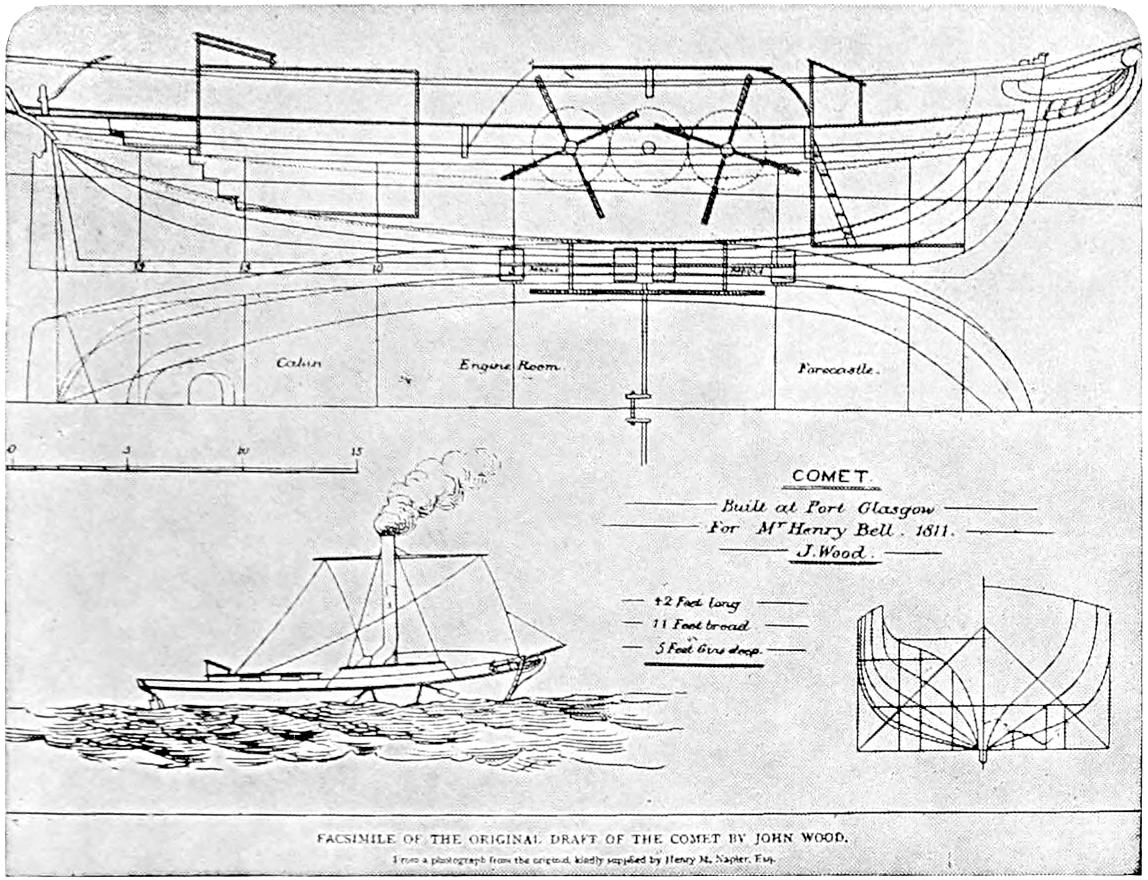 14
13
10
3
Cabin
Engine Room.
Forecastle.
0
5
10
15
COMET.
Built at Port Glasgow
For Mr Henry Bell. 1811.
J. Wood.
42 Feet long
11 Feet broad
5 Feet 6ins deep.
FACSIMILE OF THE ORIGINAL DRAFT OF THE COMET BY JOHN WOOD.
From a photograph from the original, kindly supplied by Henry M. Napier, Esq.